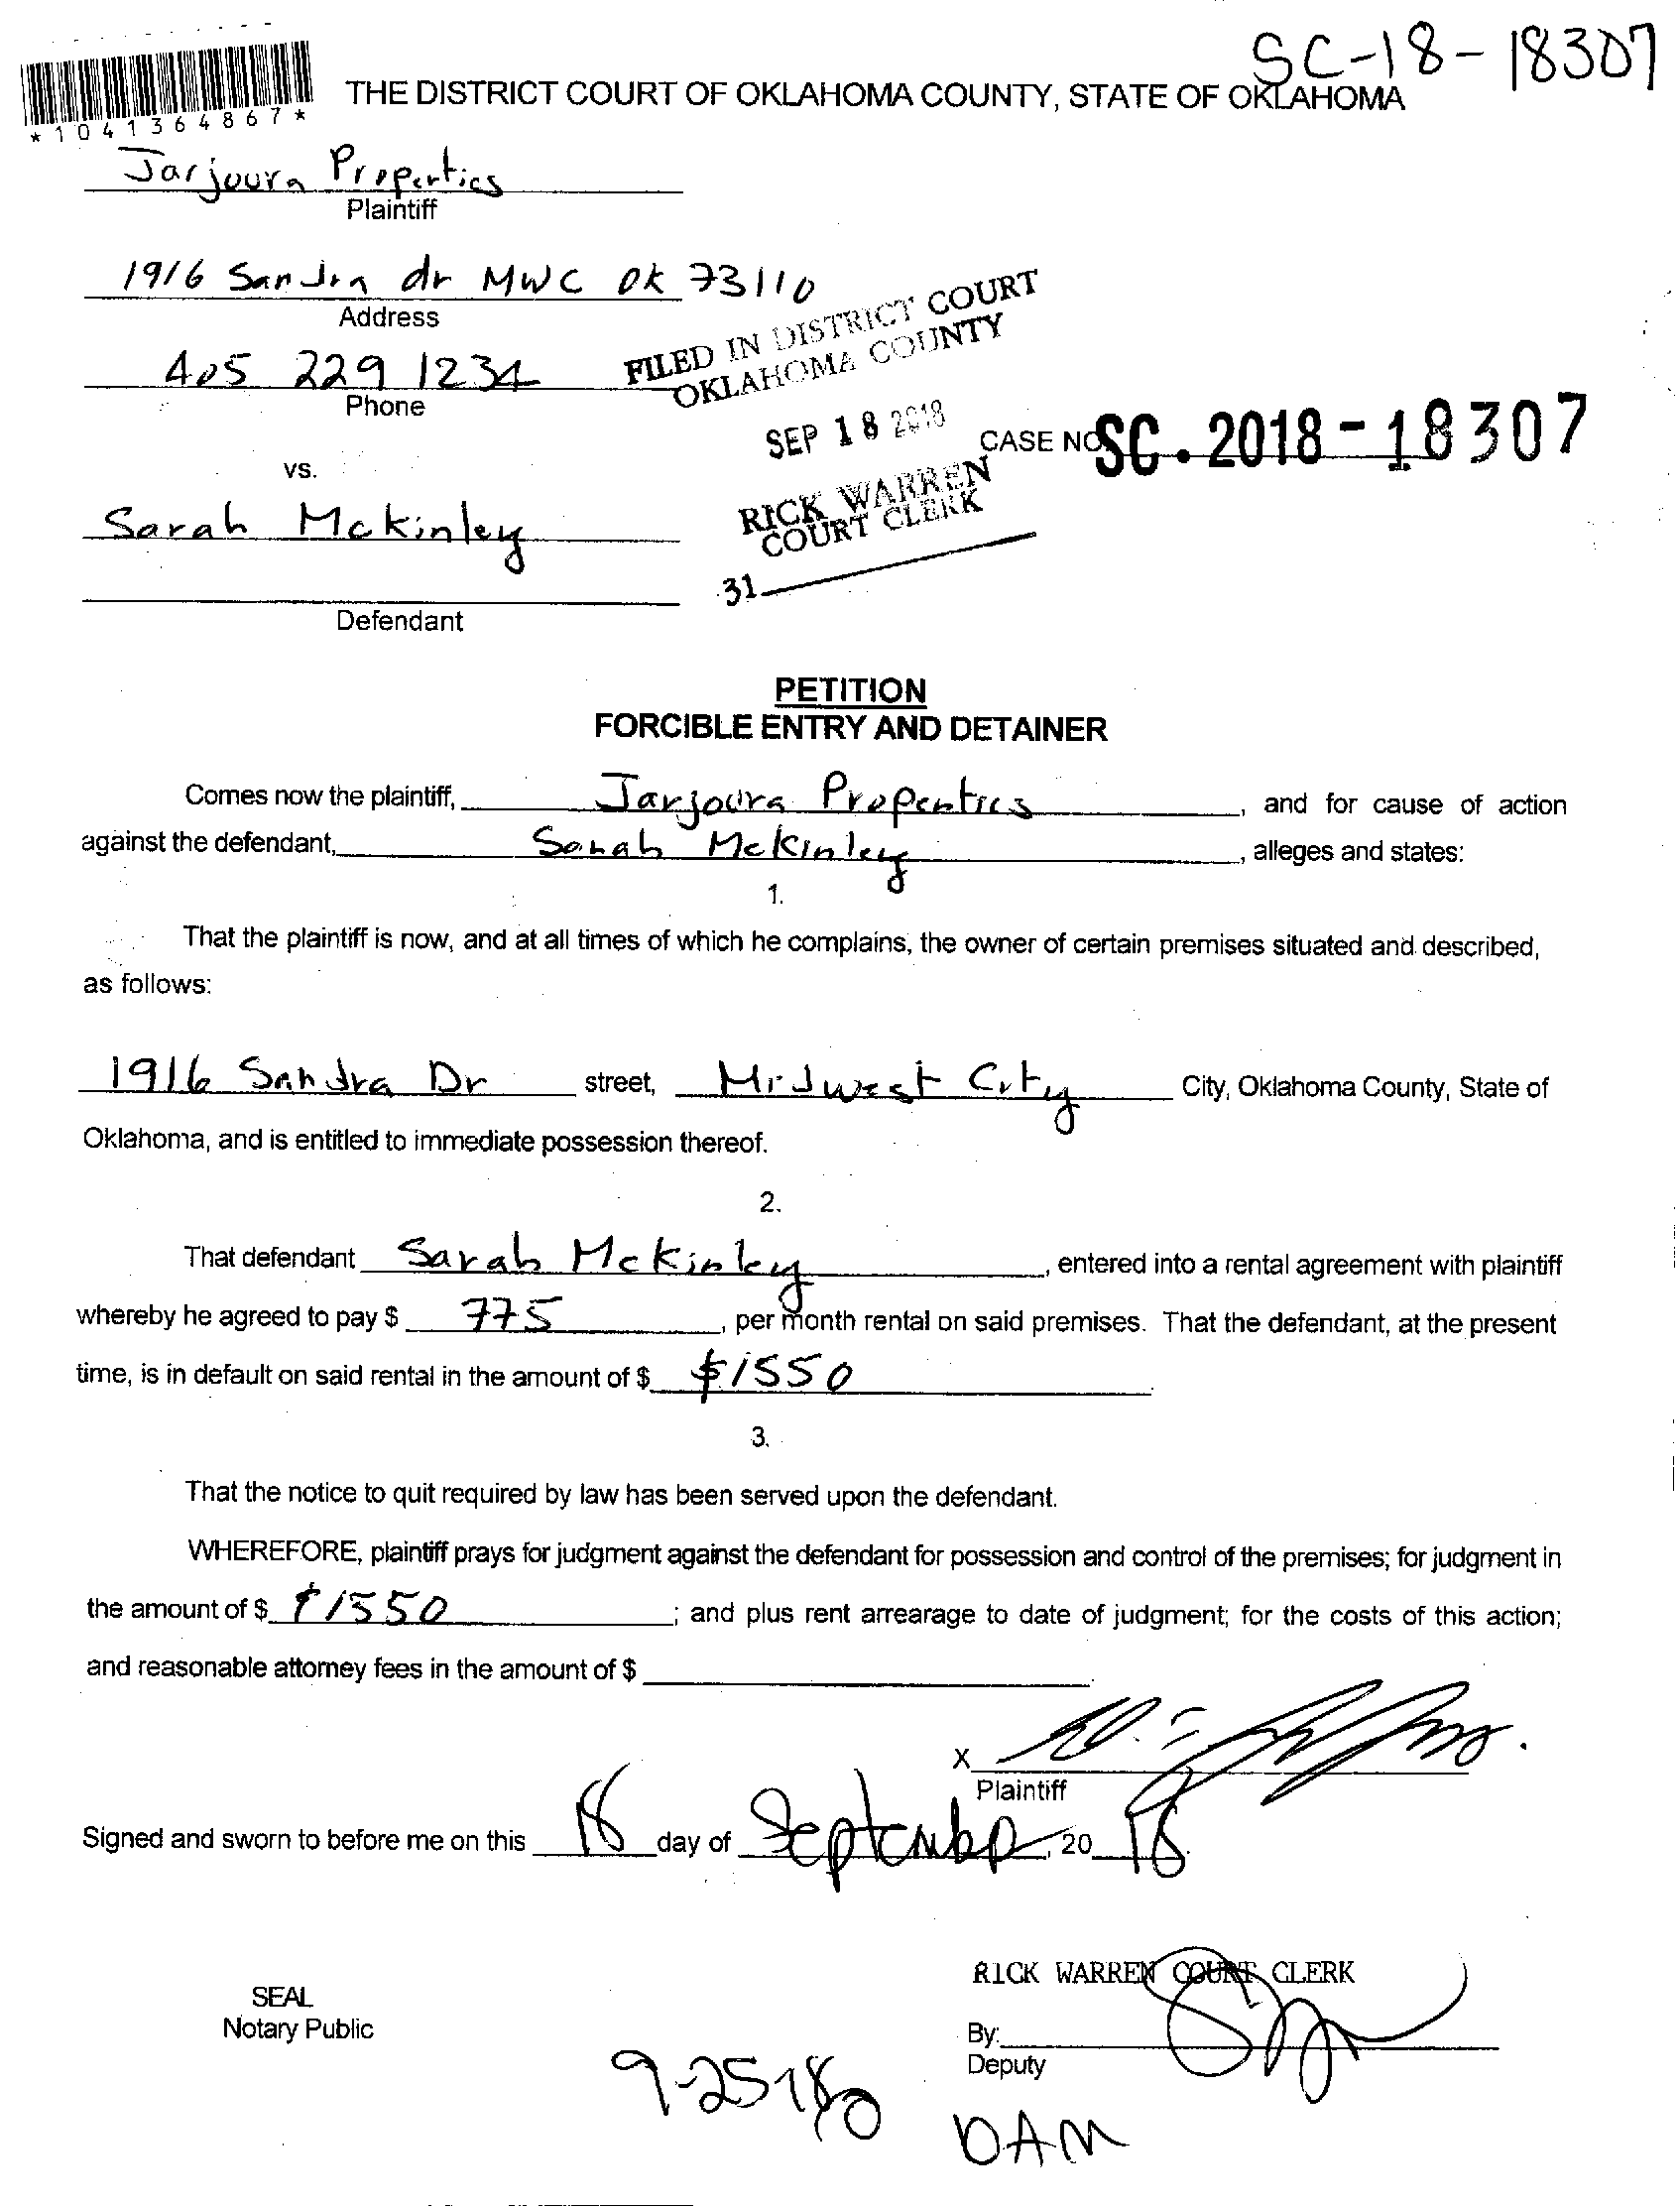 SC-18-18307
*1041364867*
THE DISTRICT COURT OF OKLAHOMA COUNTY, STATE OF OKLAHOMA
Jarjoura Properties
Plaintiff
1916 Sandra dr MWC OK 73110
Address
405 229 1234
Phone
FILED IN DISTRICT COURT
OKLAHOMA COUNTY
SEP 18 2018
RICK WARREN
COURT CLERK
31
CASE NO SC. 2018-18307
vs.
Sarah Mckinley
Defendant
PETITION
FORCIBLE ENTRY AND DETAINER
Comes now the plaintiff, Jarjoura Properties, and for cause of action
against the defendant, Sarah Mckinley, alleges and states:
1.
That the plaintiff is now, and at all times of which he complains, the owner of certain premises situated and described,
as follows:
1916 Sandra Dr street, Midwest City City, Oklahoma County, State of
Oklahoma, and is entitled to immediate possession thereof.
2.
That defendant Sarah Mckinley, entered into a rental agreement with plaintiff
whereby he agreed to pay $ 775, per month rental on said premises. That the defendant, at the present
time, is in default on said rental in the amount of $ $1550
3.
That the notice to quit required by law has been served upon the defendant.
WHEREFORE, plaintiff prays for judgment against the defendant for possession and control of the premises; for judgment in
the amount of $ $1550; and plus rent arrearage to date of judgment; for the costs of this action;
and reasonable attorney fees in the amount of $
X
Plaintiff
Signed and sworn to before me on this 18 day of September, 20 18.
RICK WARREN COURT CLERK
SEAL
Notary Public
By:
Deputy
9-25-18